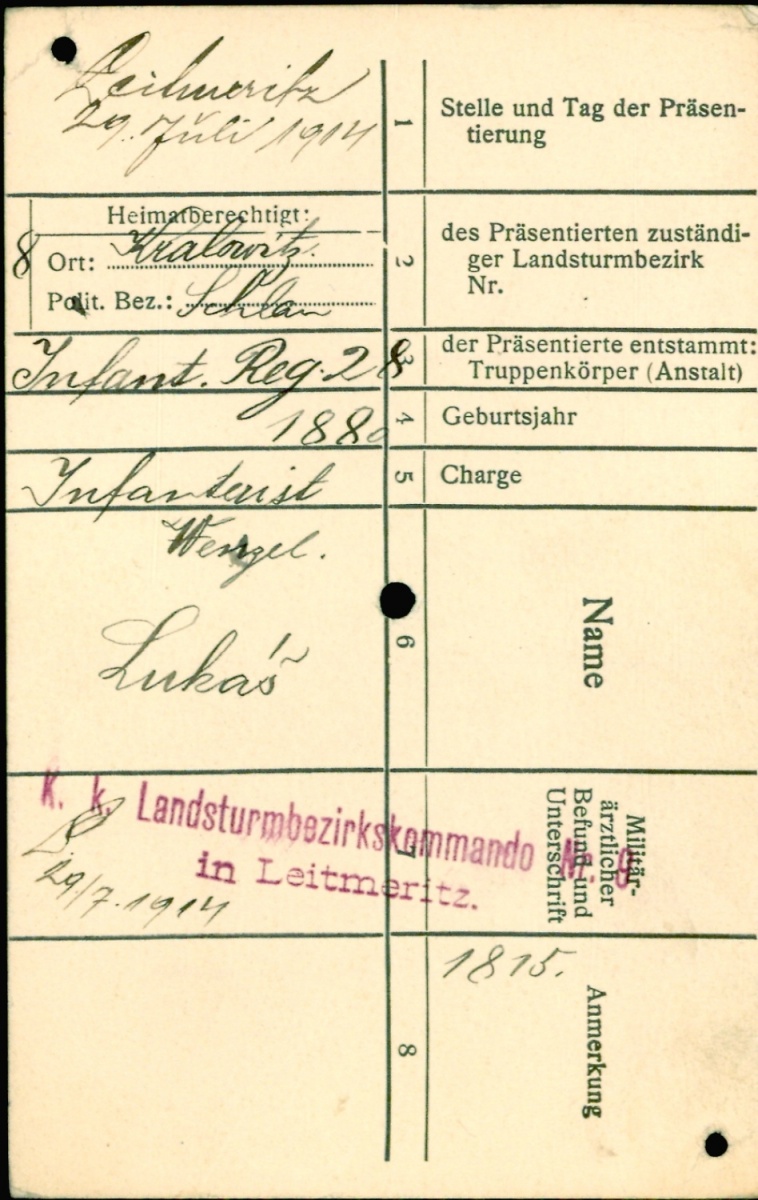 1
Stelle und Tag der Präsen-
tierung
Leitmeritz
29. Juli 1914
2
des Präsentierten zuständi-
ger Landsturmbezirk
Nr.
8
Heimatberechtigt:
Ort: Kralowitz.
Polit. Bez.: Schlan
3
der Präsentierte entstammt:
Truppenkörper (Anstalt)
Infant. Reg. 28
4
Geburtsjahr
1880
5
Charge
Infanterist
6
Name
Wenzel.
Lukáš
7
Militär-
ärztlicher
Befund und
Unterschrift
K. k. Landsturmbezirkskommando Nr. 9
in Leitmeritz.
29/7. 1914
8
Anmerkung
1815.